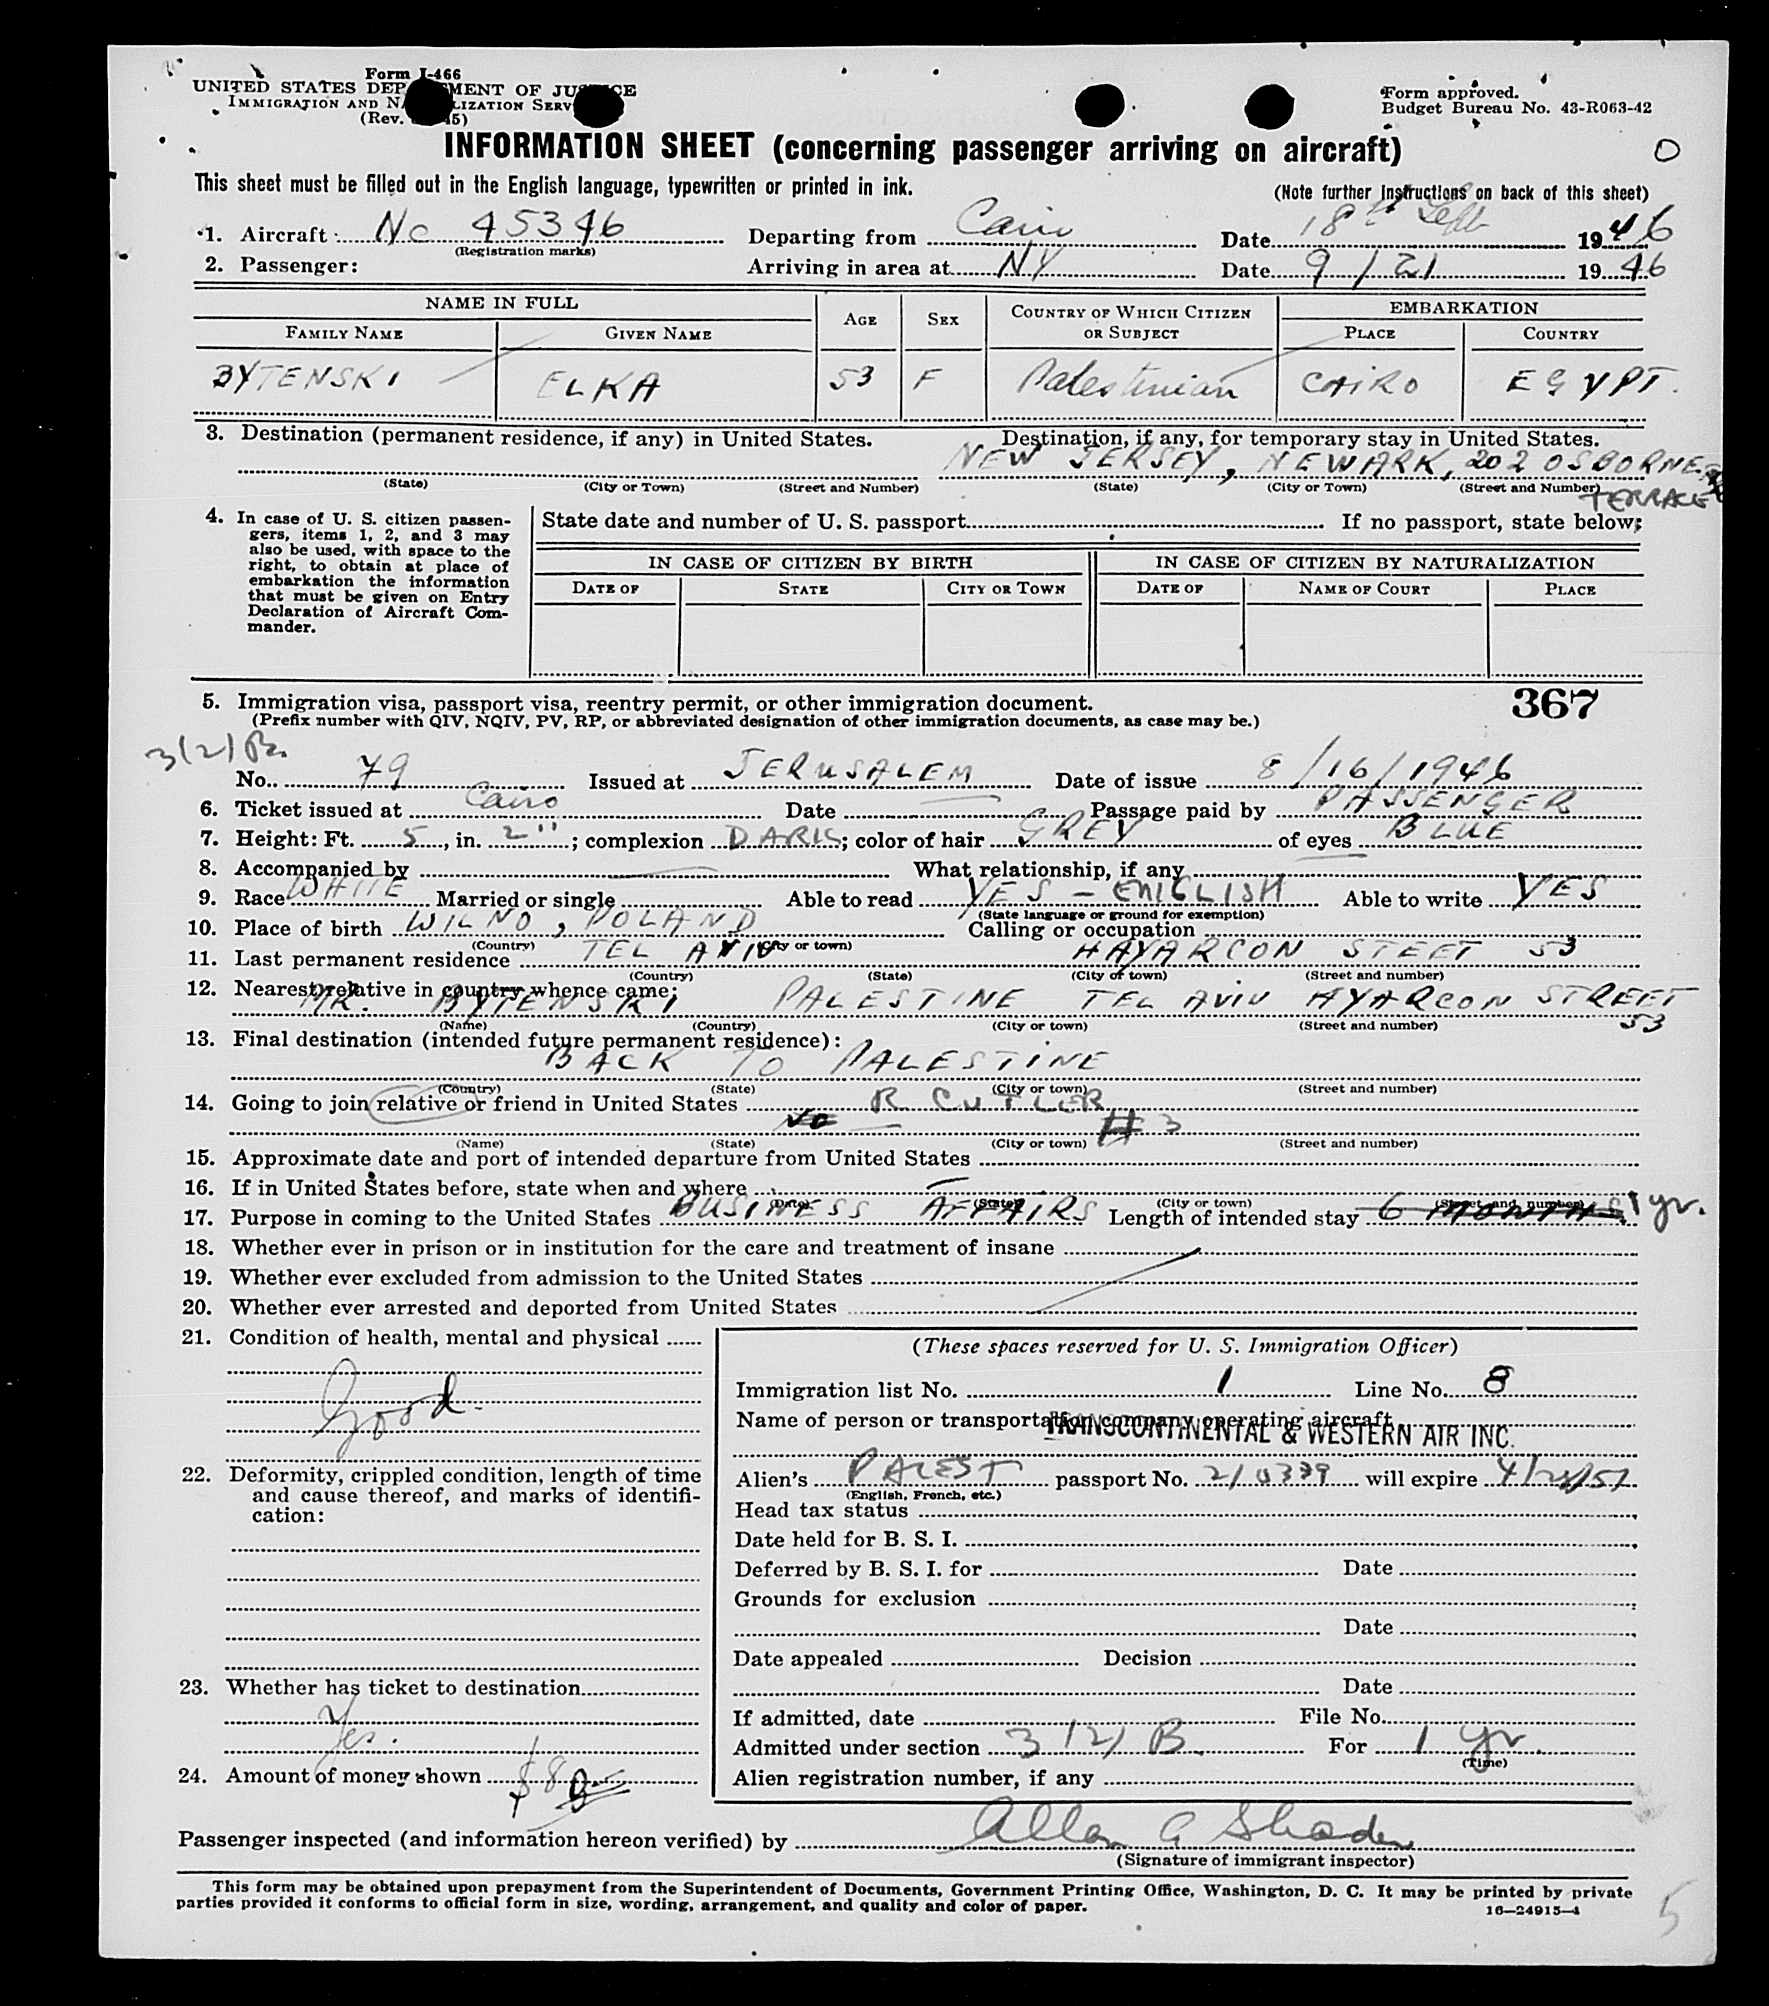 Form I-466
UNITED STATES DEPARTMENT OF JUSTICE
IMMIGRATION AND NATURALIZATION SERVICE
(Rev. 45)
Form approved.
Budget Bureau No. 43-R063-42
INFORMATION SHEET (concerning passenger arriving on aircraft)
O
This sheet must be filled out in the English language, typewritten or printed in ink.
(Note further instructions on back of this sheet)
1. Aircraft Nc 45346 Departing from Cairo Date 18th Sept 1946
(Registration marks)
2. Passenger: Arriving in area at NY Date 9/21 1946
NAME IN FULL
FAMILY NAME GIVEN NAME AGE SEX COUNTRY OF WHICH CITIZEN OR SUBJECT EMBARKATION PLACE COUNTRY
BYTENSKI ELKA 53 F Palestinian CAIRO EGYPT.
3. Destination (permanent residence, if any) in United States. Destination, if any, for temporary stay in United States.
NEW JERSEY, NEWARK, 202 OSBORNE
TERRACE
(State) (City or Town) (Street and Number) (State) (City or Town) (Street and Number)
4. In case of U. S. citizen passengers, items 1, 2, and 3 may
also be used, with space to the
right, to obtain at place of
embarkation the information
that must be given on Entry
Declaration of Aircraft Commander.
State date and number of U. S. passport If no passport, state below:
IN CASE OF CITIZEN BY BIRTH IN CASE OF CITIZEN BY NATURALIZATION
DATE OF STATE CITY OR TOWN DATE OF NAME OF COURT PLACE
5. Immigration visa, passport visa, reentry permit, or other immigration document.
367
(Prefix number with QIV, NQIV, PV, RP, or abbreviated designation of other immigration documents, as case may be.)
3(2)
No. 79 Issued at JERUSALEM Date of issue 8/16/1946
6. Ticket issued at Cairo Date Passage paid by PASSENGER
7. Height: Ft. 5, in. 2"; complexion DARK; color of hair GREY of eyes BLUE
8. Accompanied by — What relationship, if any
9. Race WHITE Married or single Able to read YES - ENGLISH Able to write YES
(State language or ground for exemption)
10. Place of birth WILNO, POLAND Calling or occupation
(Country) (City or town)
11. Last permanent residence TEL AVIV HAYARCON STEET 53
(Country) (State) (City or town) (Street and number)
12. Nearest relative in country whence came:
MR. BYTENSKI PALESTINE TEL AVIV HAYARCON STREET
53
(Name) (Country) (City or town) (Street and number)
13. Final destination (intended future permanent residence):
BACK TO PALESTINE
(Country) (State) (City or town) (Street and number)
14. Going to join relative or friend in United States R CUTLER
# 3
(Name) (State) (City or town) (Street and number)
15. Approximate date and port of intended departure from United States
16. If in United States before, state when and where —
(Date) (State) (City or town) (Street and number)
17. Purpose in coming to the United States BUSINESS AFFAIRS Length of intended stay 6 MONTHS 1 yr.
18. Whether ever in prison or in institution for the care and treatment of insane
19. Whether ever excluded from admission to the United States
20. Whether ever arrested and deported from United States
21. Condition of health, mental and physical
Good.
22. Deformity, crippled condition, length of time
and cause thereof, and marks of identification:
23. Whether has ticket to destination
Yes.
24. Amount of money shown $80
(These spaces reserved for U. S. Immigration Officer)
Immigration list No. 1 Line No. 8
Name of person or transportation company operating aircraft
TRANSCONTINENTAL & WESTERN AIR INC.
Alien's PALEST passport No. will expire
(English, French, etc.)
Head tax status
Date held for B. S. I.
Deferred by B. S. I. for Date
Grounds for exclusion
Date
Date appealed Decision
Date
If admitted, date File No.
Admitted under section 3(2) B For 1 yr.
(Time)
Alien registration number, if any
Passenger inspected (and information hereon verified) by Allan G
(Signature of immigrant inspector)
This form may be obtained upon prepayment from the Superintendent of Documents, Government Printing Office, Washington, D. C. It may be printed by private
parties provided it conforms to official form in size, wording, arrangement, and quality and color of paper.
16—24915-4
5